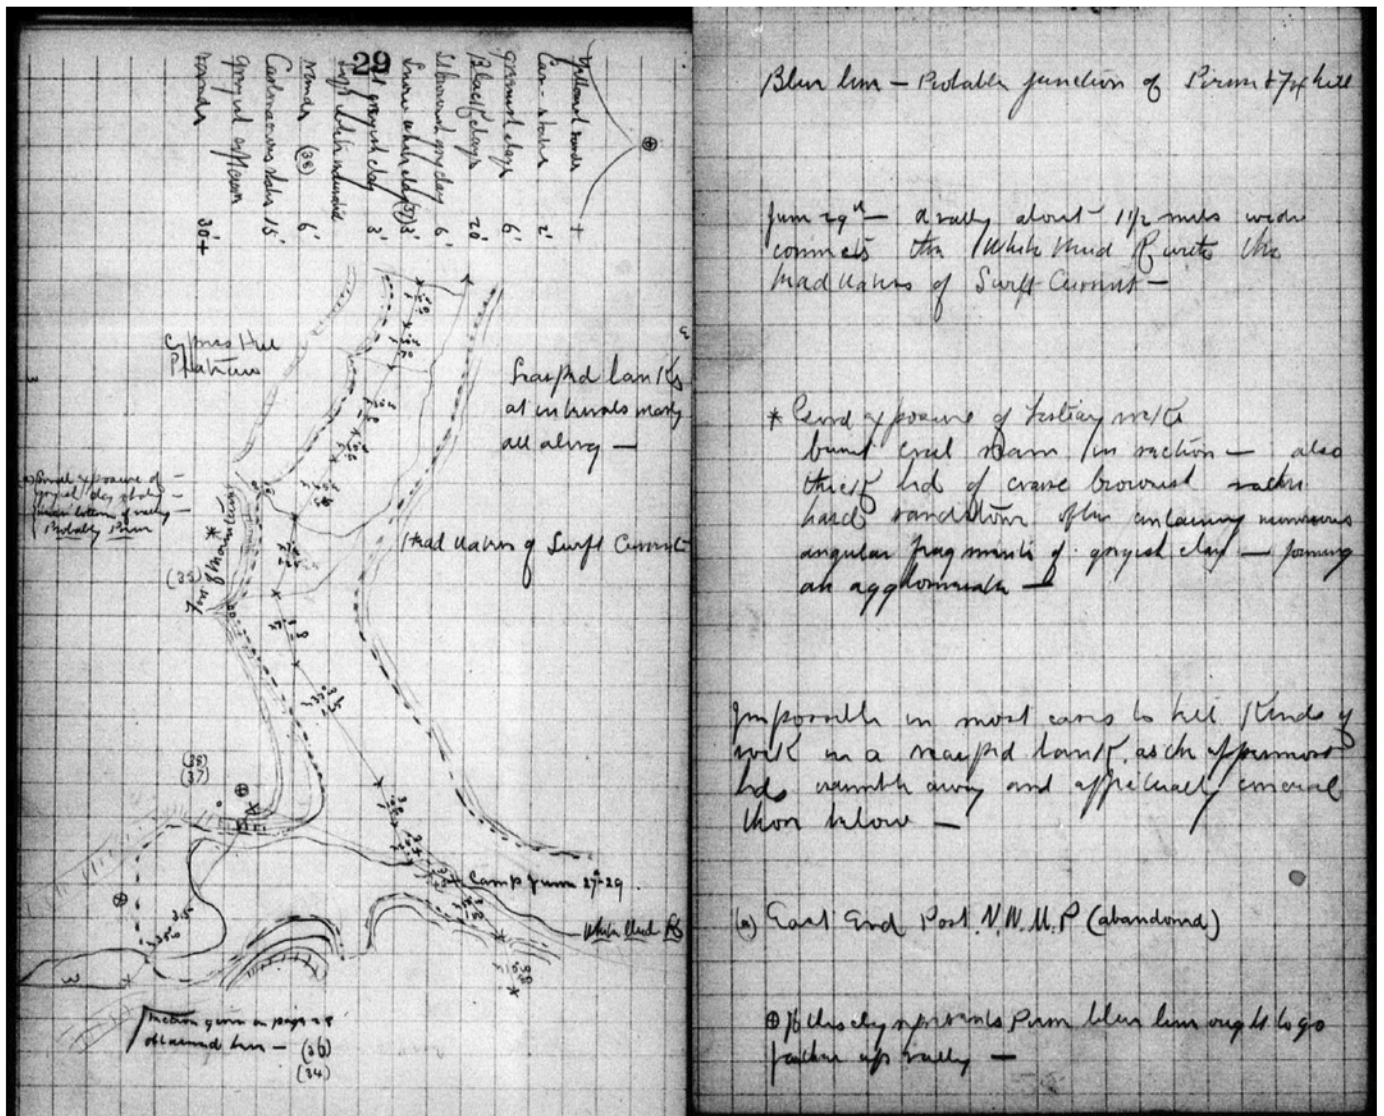 29
Yellowish sands +
Car. shales 2'
greenish clays 6'
Black clays 20'
grey clay 6'
Snow white clay (37) 3'
greyish clay 3'
sands (38) 6'
Carbonaceous shales 15'
greyish
sands 30'+
Cypress Hill
Plateau
Scarped banks
at intervals nearly
all along —
Small exposure of
greyish clay shales
near bottom of valley —
Probably Pierre
(35)
Head Waters of Swift Current
(38)
(37)
Camp June 27th-29.
White Mud R
Section given on page 28
obtained here — (36)
(34)
Blue line — Probable junction of Pierre & Fox Hill
June 29th — A valley about 1 1/2 miles wide
connects the White Mud R with the
head waters of Swift Current —
* Good exposure of Tertiary with
burnt coal seam in section — also
thick bed of coarse brownish rather
hard sandstone often containing numerous
angular fragments of greyish clay — forming
an agglomerate —
Impossible in most cases to tell kinds of
rock in a scarped bank, as the uppermost
beds crumble away and effectually conceal
those below —
(a) East End Post. N.W.M.P (abandoned)
⊕ If this clay represents Pierre blue line ought to go
farther up valley —